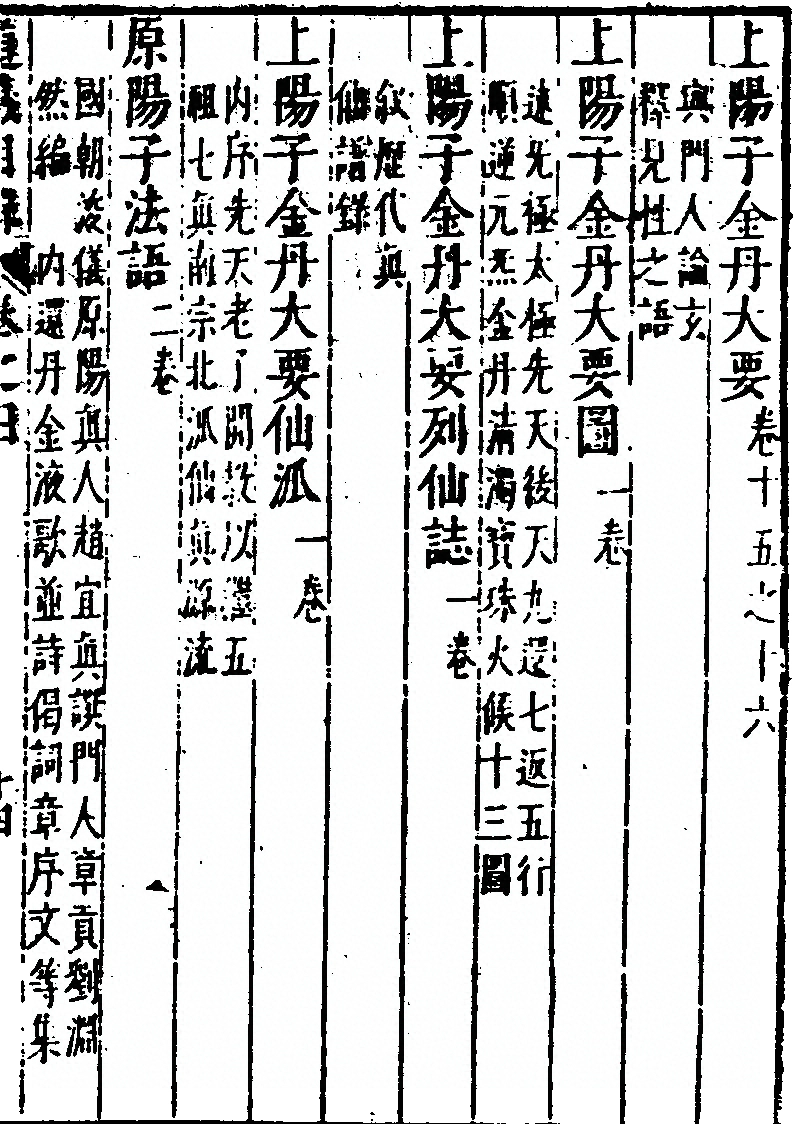 上陽子金丹大要卷十五之十六
與門人論玄
釋見性之語
上陽子金丹大要圖一卷
述先極太極先天後天九還七返五行
順逆元炁金丹清濁寶珠火候十三圖
上陽子金丹大要列仙誌一卷
叙歷代真
仙譜錄
上陽子金丹大要仙派一卷
内序先天老子開教以繼五
祖七真南宗北派仙真源流
原陽子法語二卷
國朝浚儀原陽真人趙宜真譔門人章貢劉淵
然編 内還丹金液歌並詩偈詞章序文等集